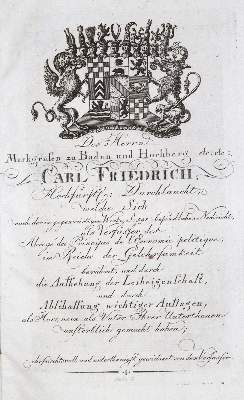 Des Herrn
Markgrafen zu Baden und Hochberg etc. etc.
CARL FRIEDRICH
Hochfürstl. Durchlaucht,
welche Sich
als Verfasser des
Abregé des Principes de l'Economie politique,
im Reiche der Gelehrsamkeit
berühmt, und durch
die Aufhebung der Leibeigenschaft,
und durch
Abschaffung wichtiger Auflagen,
als Herr, wie als Vater Ihrer Unterthanen
unsterblich gemacht haben;
ehrfurchtsvoll und unterthänigst gewidmet von dem Verfasser